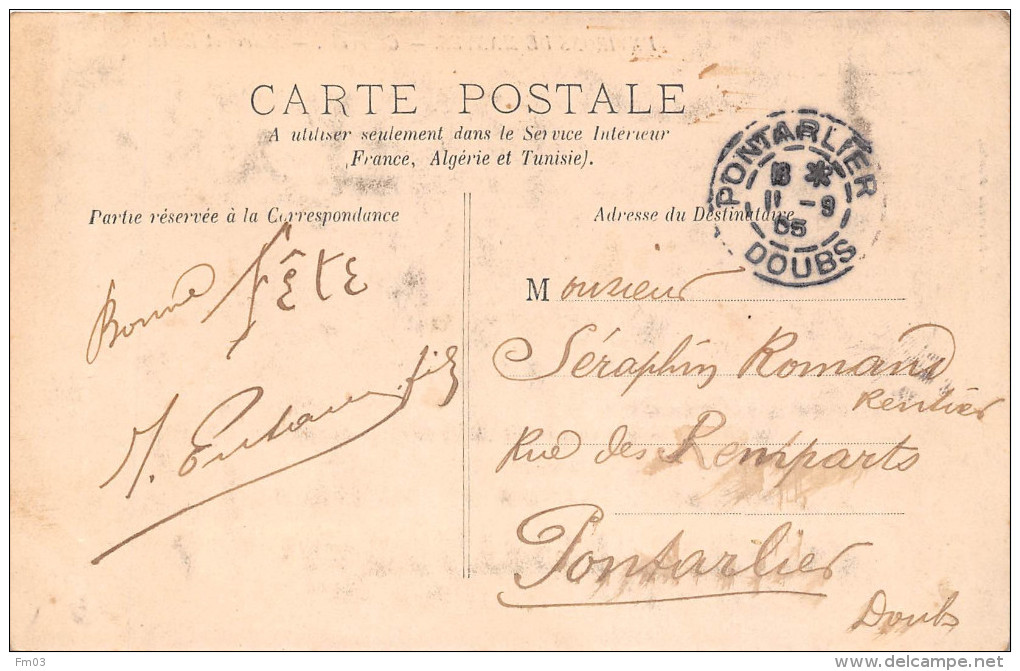 CARTE POSTALE
A utiliser seulement dans le Service Intérieur
(France, Algérie et Tunisie).
Partie réservée à la Correspondance
Adresse du Destinataire
PONTARLIER
18 *
11 -9
05
DOUBS
Bonne fête
fils
Monsieur
Séraphin Romand
Rentier
Rue des Remparts
Pontarlier
Doubs
Fm03
www.delcampe.net